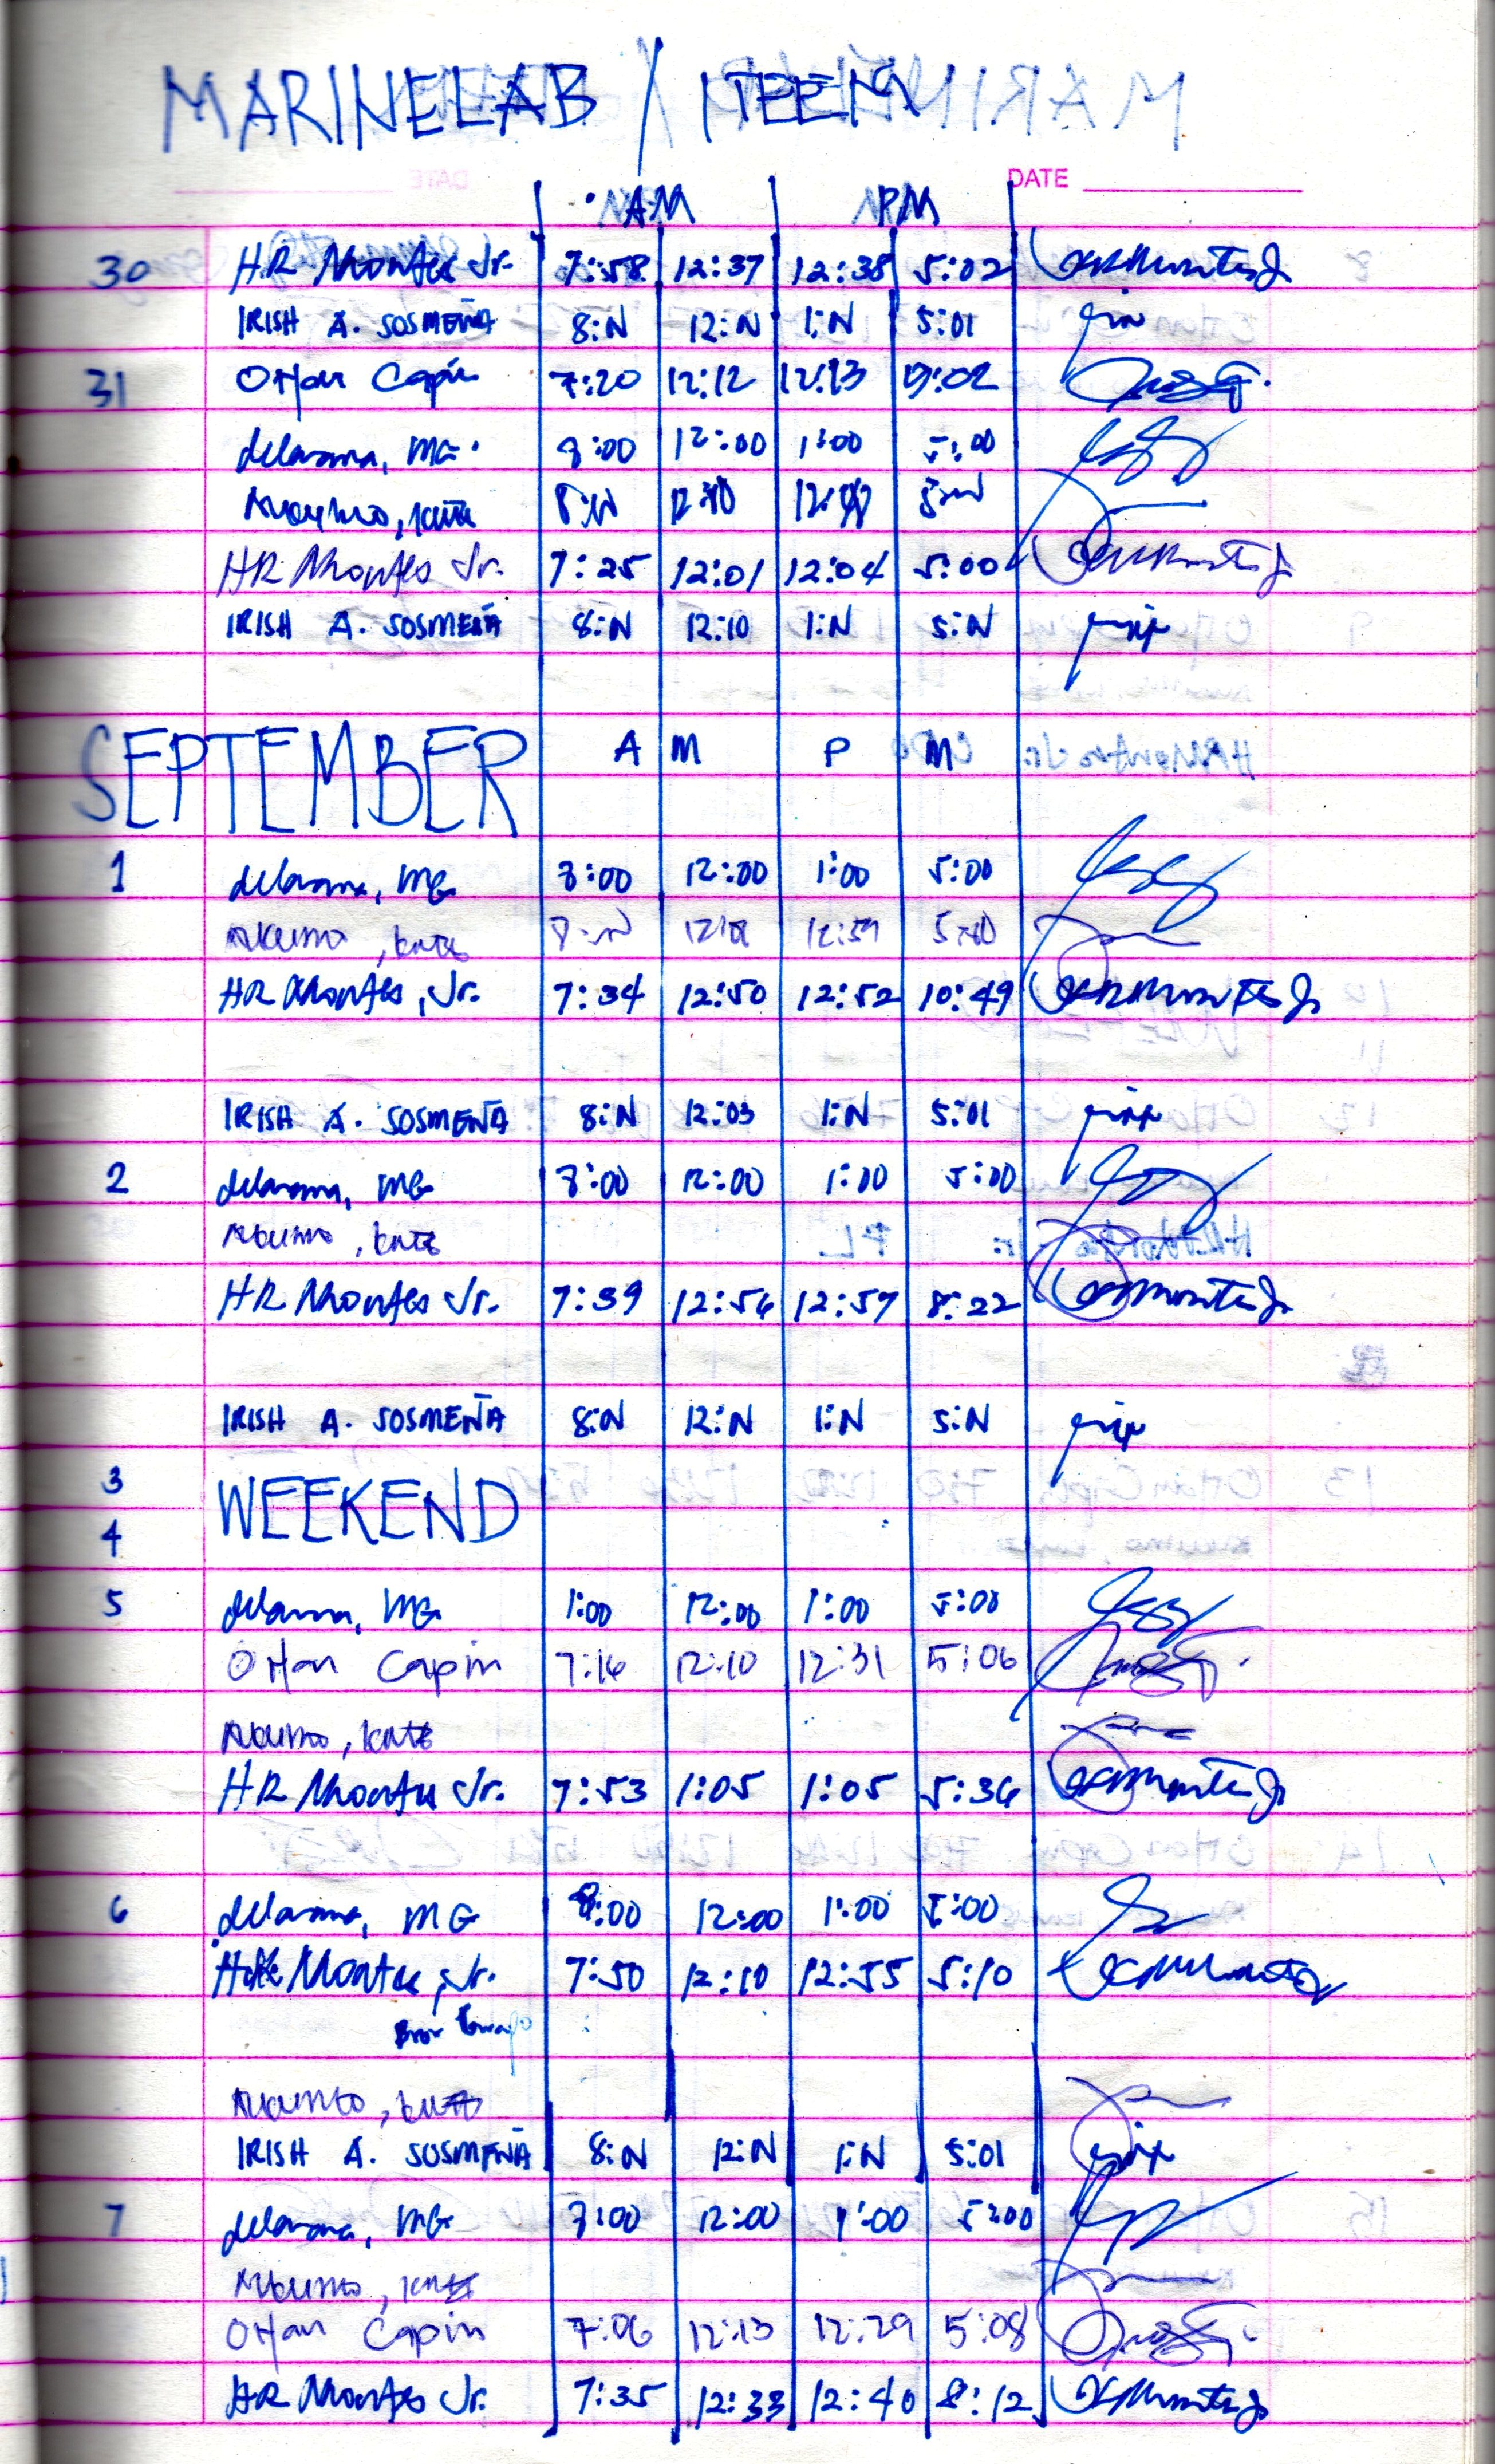 MARINELAB / ITEEM
DATE
AM PM
30 HR Montes Jr. 7:58 12:37 12:38 5:02
IRISH A. SOSMEÑA 8:N 12:N 1:N 5:01
31 Othan Capin 7:20 12:12 12:13 5:02
delarama, MG. 8:00 12:00 1:00 5:00
HR Montes Jr. 7:25 12:01 12:04 5:00
IRISH A. SOSMEÑA 8:N 12:10 1:N 5:N
SEPTEMBER A M P M
1 delarama, MG 8:00 12:00 1:00 5:00
, Kate 8:N 12:59 5:00
HR Montes, Jr. 7:34 12:50 12:52 10:49
IRISH A. SOSMEÑA 8:N 12:03 1:N 5:01
2 delarama, MG 8:00 12:00 1:00 5:00
, Kate
HR Montes Jr. 7:39 12:56 12:57 8:22
IRISH A. SOSMEÑA 8:N 12:N 1:N 5:N
3
WEEKEND
4
5 delarama, MG 1:00 12:00 1:00 5:00
Othan Capin 7:16 12:10 12:31 5:06
, Kate
HR Montes Jr. 7:53 1:05 1:05 5:36
6 delarama, MG 8:00 12:00 1:00 5:00
Montes, Jr. 7:50 12:10 12:55 5:10
, Kate
IRISH A. SOSMEÑA 8:N 12:N 1:N 5:01
7 delarama, MG 8:00 12:00 1:00 5:00
, Kate
Othan Capin 7:06 12:13 12:29 5:08
HR Montes Jr. 7:35 12:33 12:40 8:12